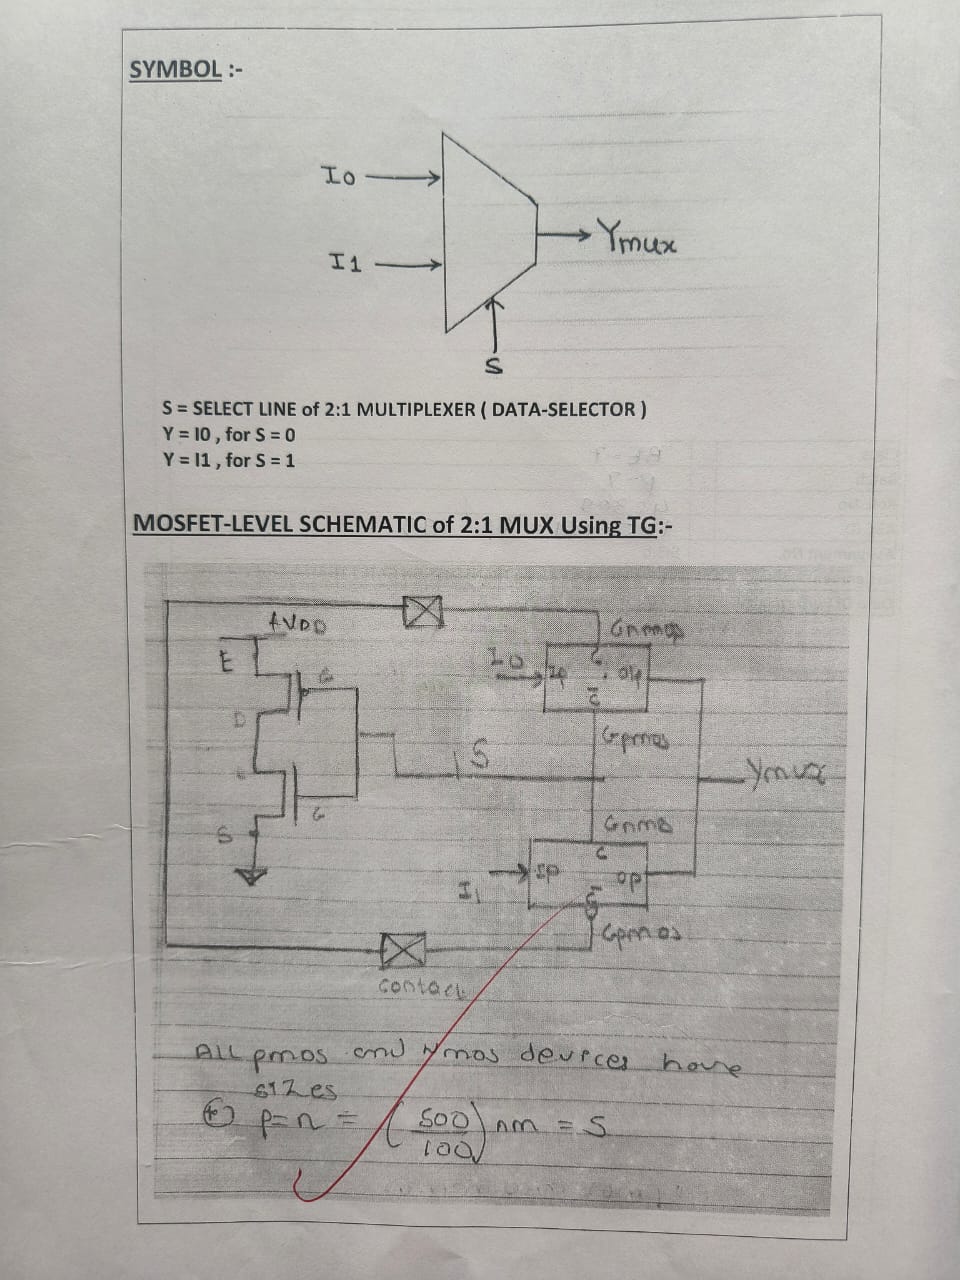 SYMBOL :-
I0
I1
Ymux
S
S = SELECT LINE of 2:1 MULTIPLEXER ( DATA-SELECTOR )
Y = I0 , for S = 0
Y = I1 , for S = 1
MOSFET-LEVEL SCHEMATIC of 2:1 MUX Using TG:-
AVDD
E
G
D
G
S
S
I0
IP
C
O/P
C̅
Gnmos
Gpmos
Ymux
Gnmos
I1
IP
C
OP
C̅
Gpmos
contact
ALL pmos and nmos devices have
sizes
p=n = (500/100) nm = 5